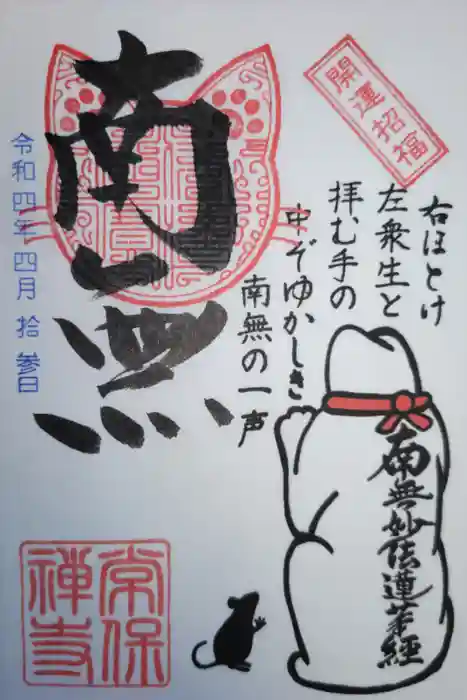 開運招福
右ほとけ
左衆生と
拝む手の
中ぞゆかしき
南無の一声
南無
令和四年四月拾参日
南無妙伝蓮華経
常保
禅寺